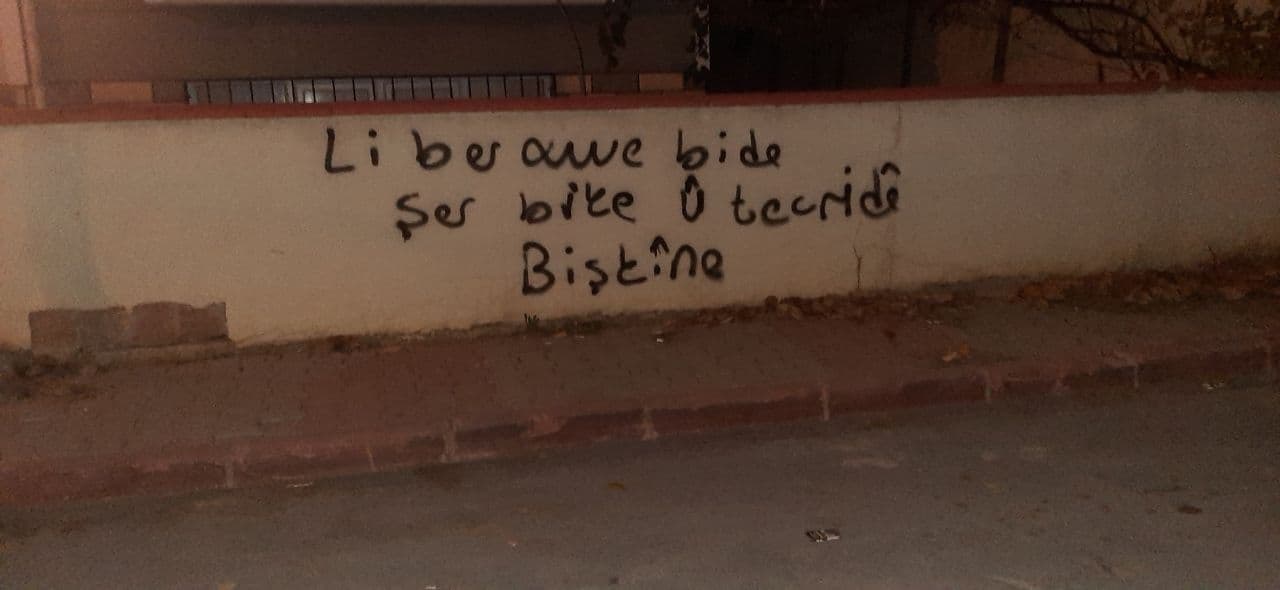 Li ber awe bide
Şer bike û tecridê
Biştîne